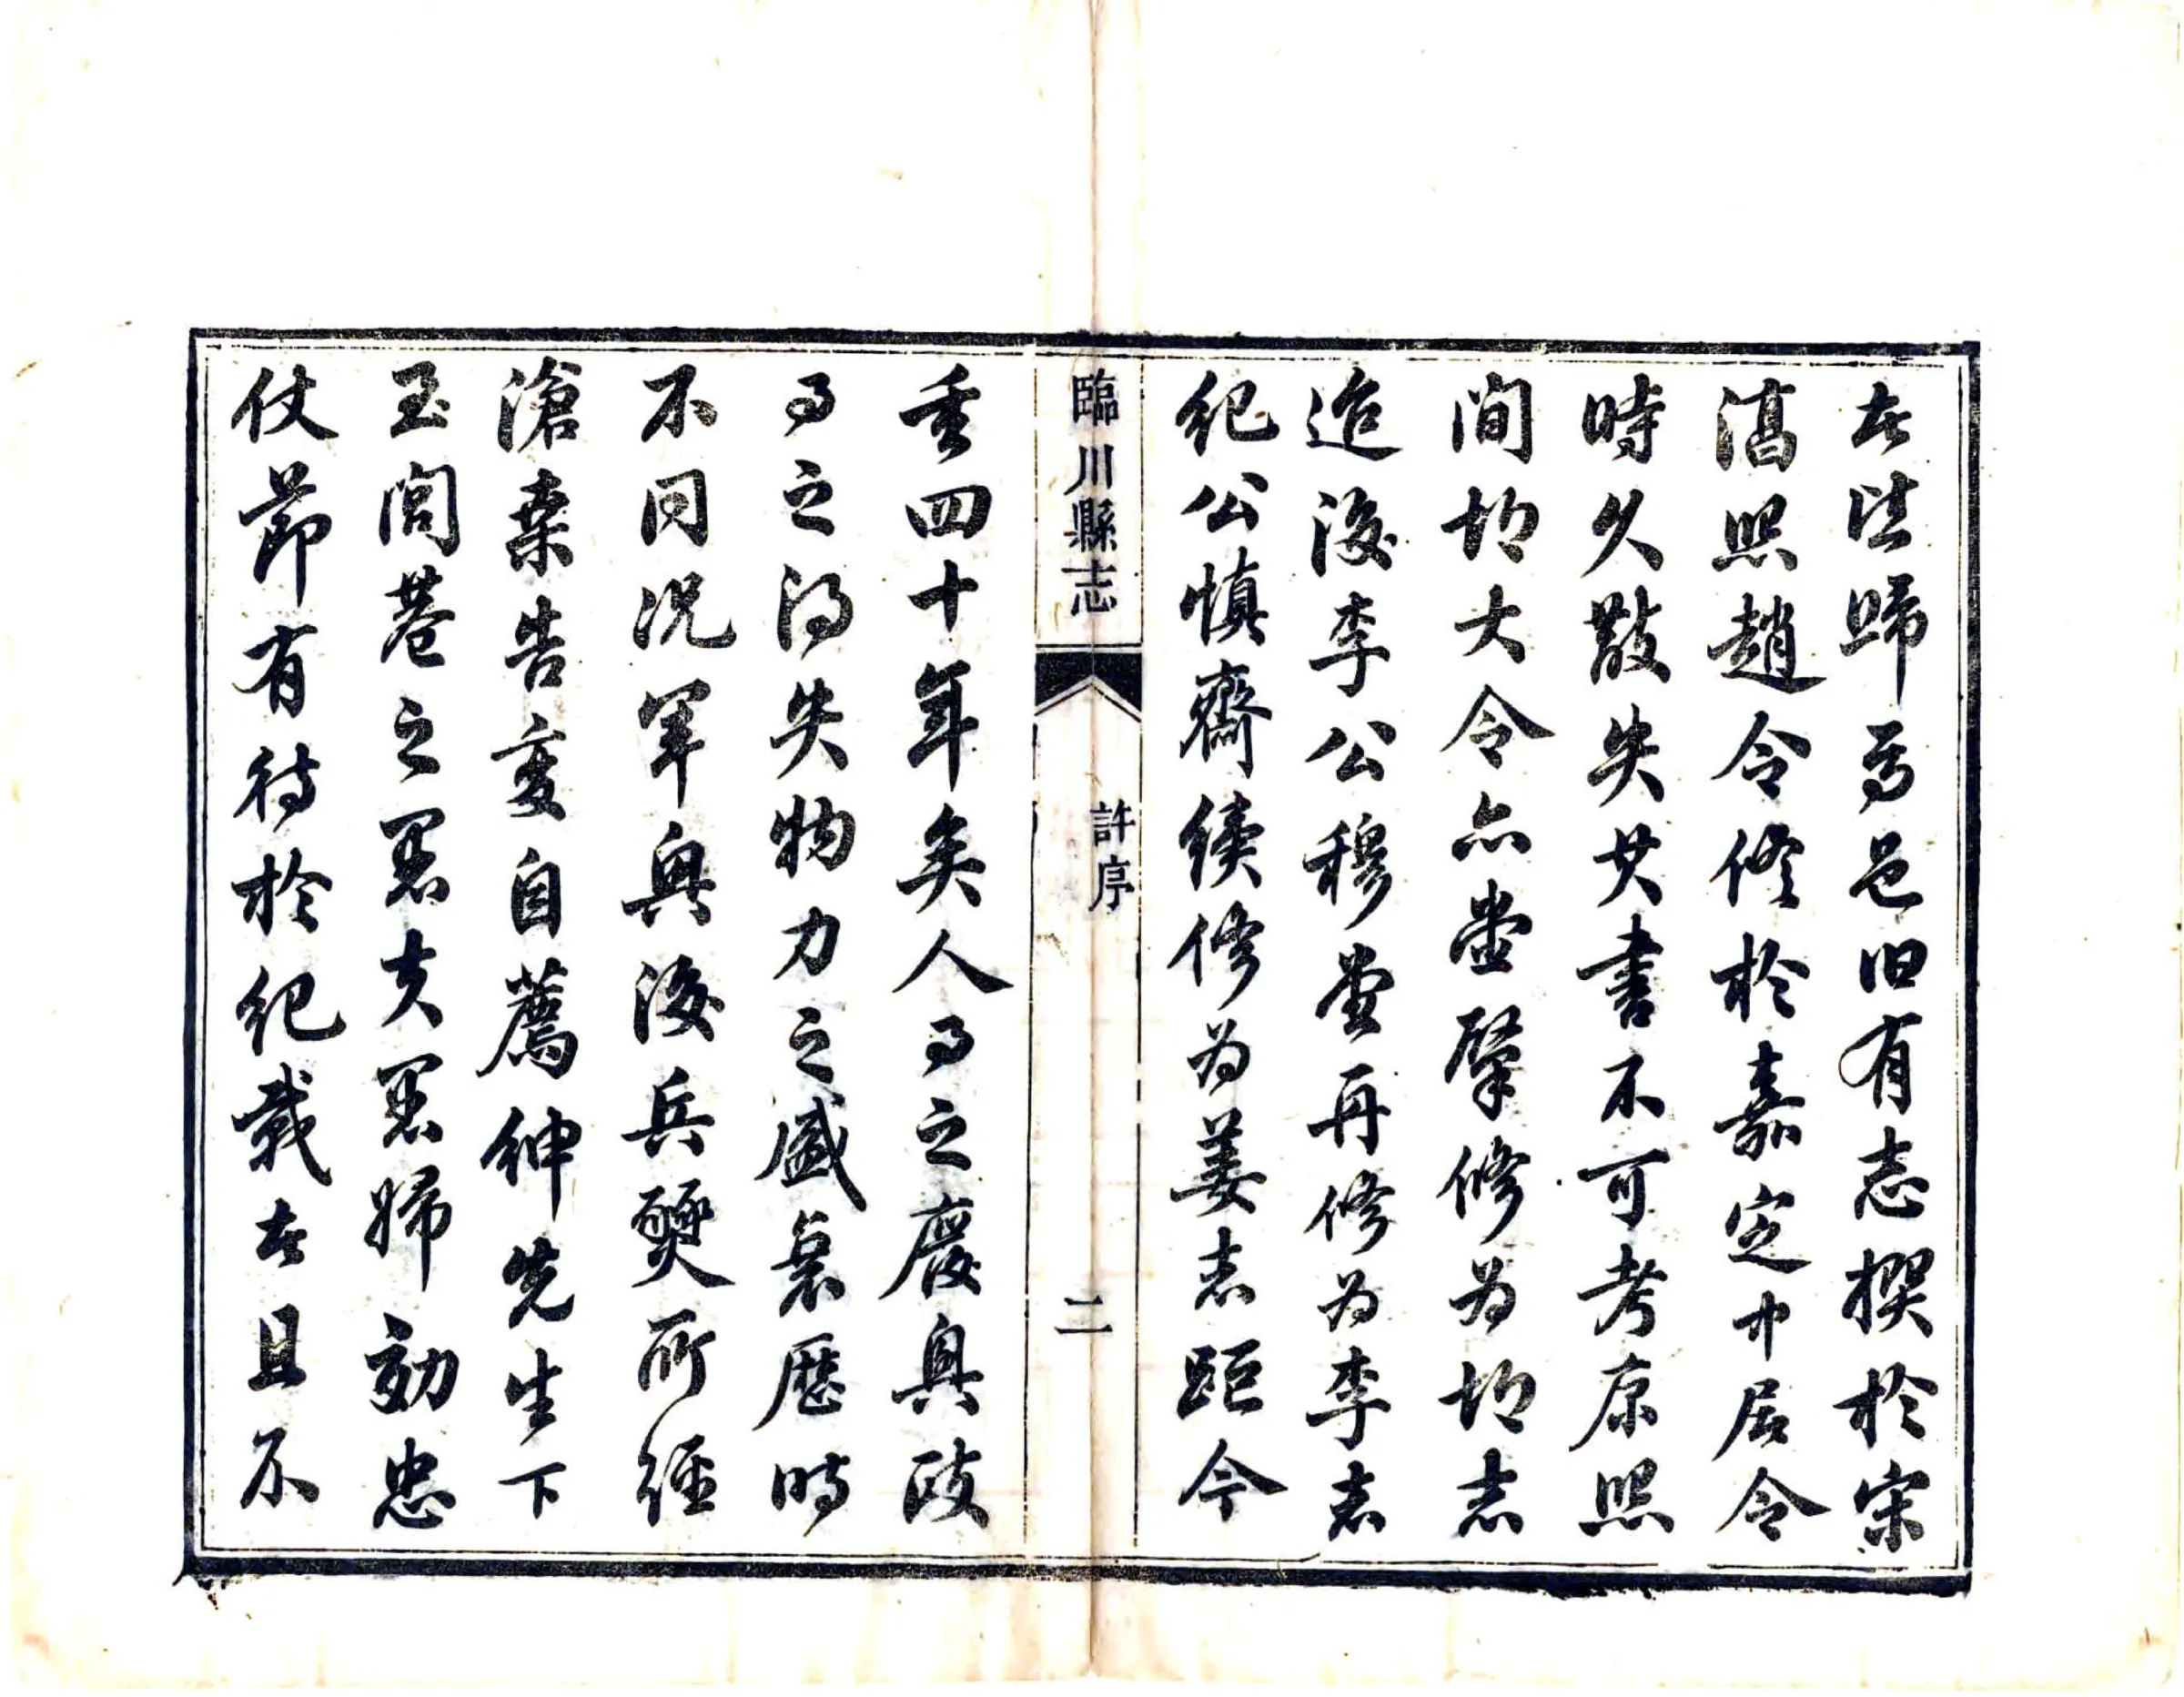 者法歸焉邑旧有志撰於宋
淳熙趙令修於嘉定中居令
時久散失其書不可考康熙
間胡大令亦堂肇修为胡志
迨後李公穆堂再修为李志
紀公慎齋續修为姜志距今
臨川縣志
許序
二
垂四十年矣人事之廢興政
事之得失物力之盛衰歷時
不同況軍興後兵燹所經
滄桑告变自薦紳先生下
至閭巷之愚夫愚婦効忠
仗節有待於紀載者且不